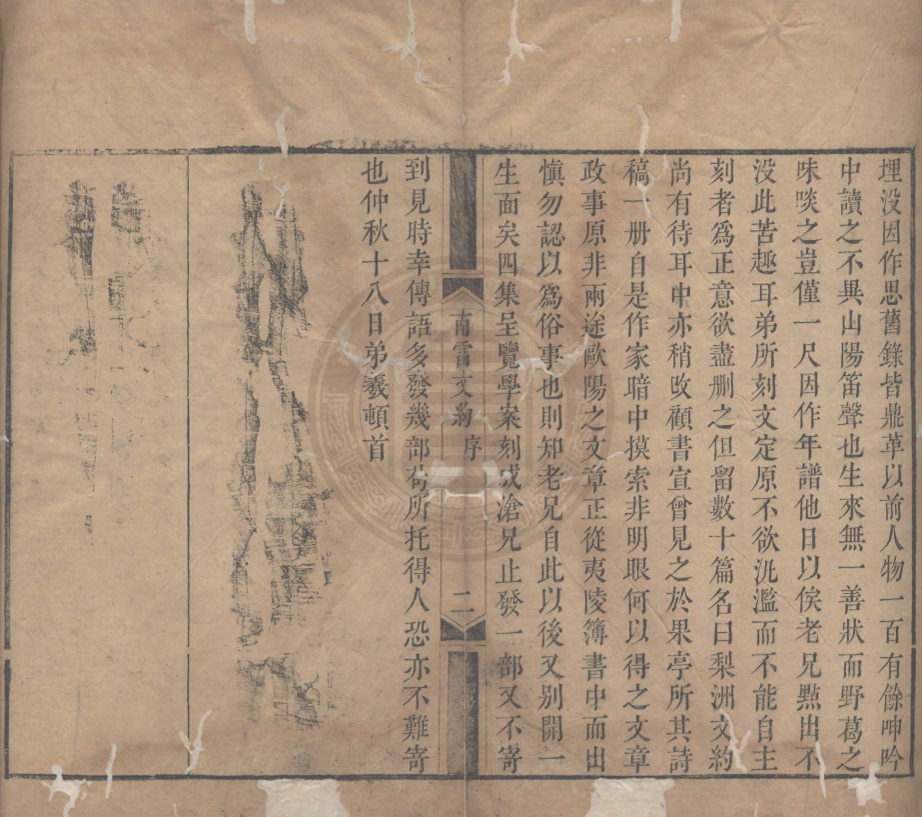 埋没因作思舊錄皆鼎革以前人物一百有餘呻吟
中讀之不異山陽笛聲也生來無一善狀而野葛之
味啖之豈僅一尺因作年譜他日以俟老兄㸃出不
没此苦趣耳弟所刻文定原不欲汎濫而不能自主
刻者爲正意欲盡删之但留數十篇名曰梨洲文約
尚有待耳中亦稍改顧書宣曾見之於果亭所其詩
稿一册自是作家暗中摸索非明眼何以得之文章
政事原非兩途歐陽之文章正從夷陵簿書中而出
愼勿認以爲俗事也則知老兄自此以後又别開一
生面矣四集呈覽學案刻成滄兄止發一部又不寄
南雷文約 序 二
到見時幸傳語多發幾部茍所托得人恐亦不難寄
也仲秋十八日弟羲頓首